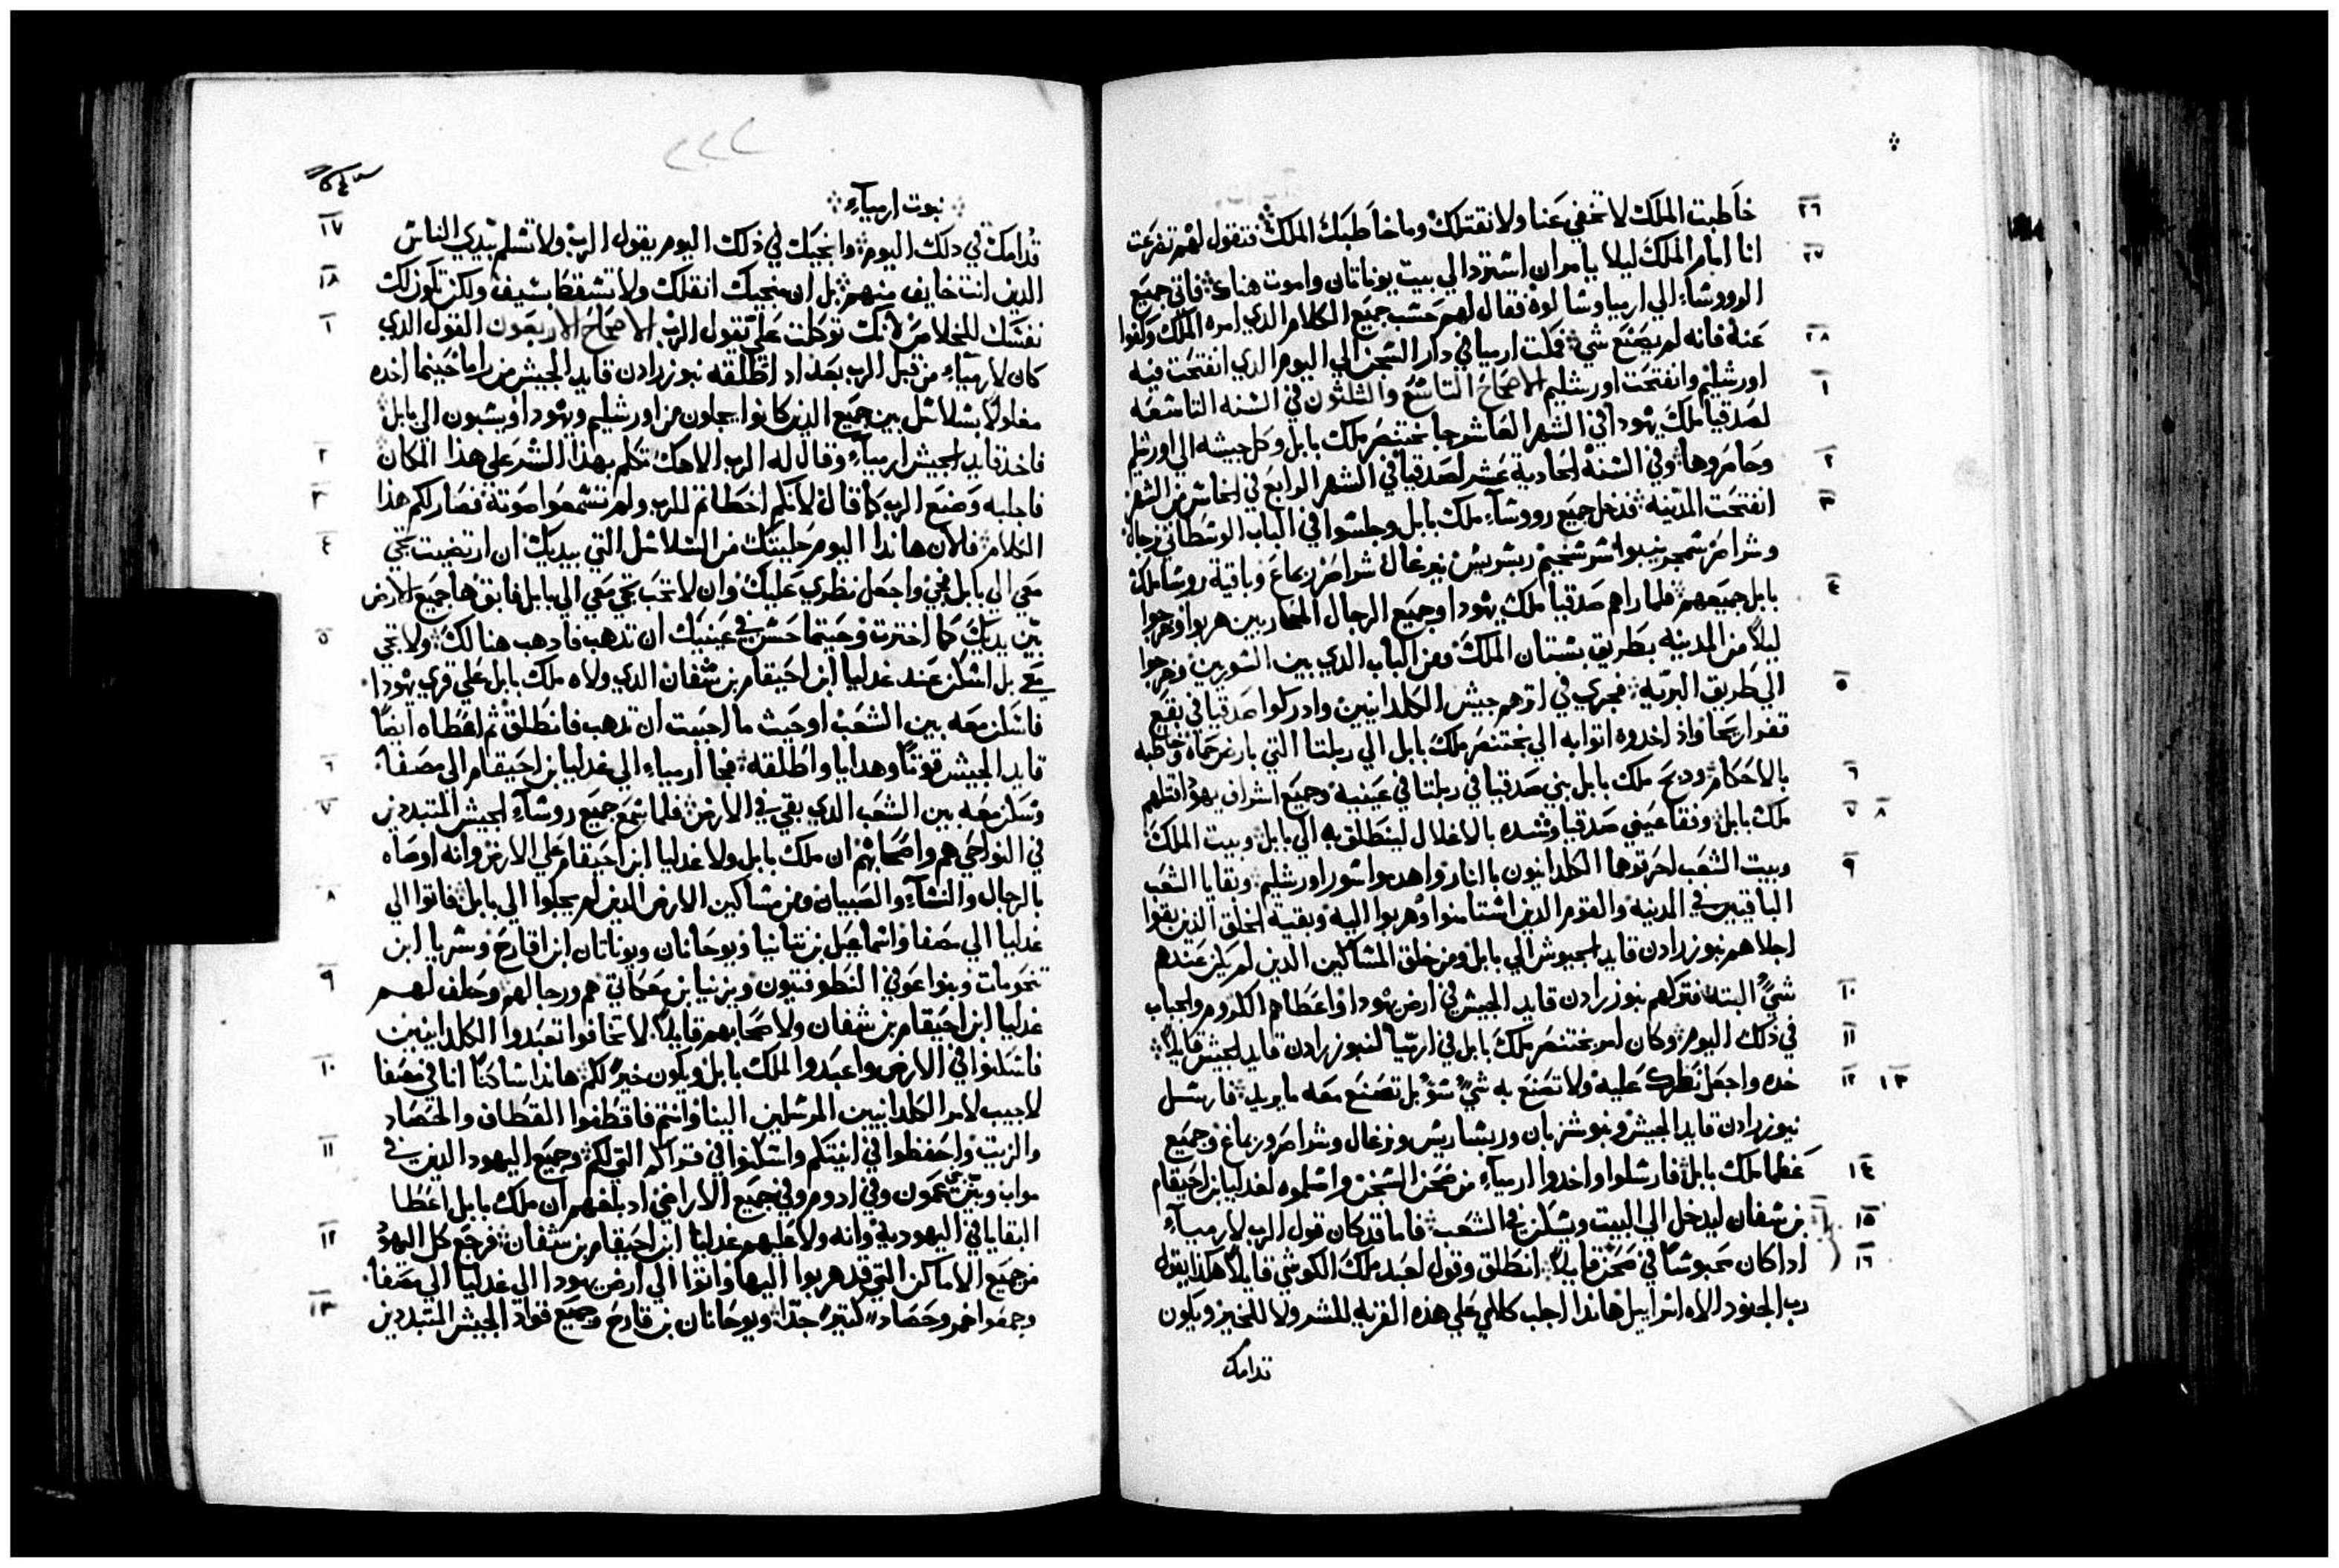 خاطبت الملك لا تخفي عنا ولا نقتلك وما خاطبك الملك فتقول لهم تضرعت ٢٦
انا امام الملك ليلا يامر ان استرد الي بيت يوناتان واموت هناك فاتي جميع ٢٧
الرووشاء الي ارميا وسالوه فقال لهم حسب جميع الكلام الذي امره الملك وكفوا
عنه فانه لم يصنع شي فمكت ارميا في دار السجن الي اليوم الذي انفتحت فيه ٢٨
اورشليم وانفتحت اورشليم الاصحاح التاسع والثلثون في السنه التاسعه ١
لصدقيا ملك يهودا في الشهر العاشر جا بختنصر ملك بابل وكل جيشه الي اورشليم
وحاصروها وفي السنة الحادية عشر لصدقيا في الشهر الرابع في الخامس من الشهر ٢
انفتحت المدينه فدخل جميع رووساء ملك بابل وجلسوا في الباب الوسطاني نرجال ٣
شراصر سمجر نيبوا سرسخيم ربسويس نيرغال شراصر ربماغ وباقية روسا ملك
بابل جميعهم فلما راهم صدقيا ملك يهودا وجميع الرجال المحاربين هربوا وخرجوا ٤
ليلا من المدينه بطريق بستان الملك ومن الباب الذي بين السورين وخرجوا
الي طريق البرية فجري في اترهم جيش الكلدانيين وادركوا صدقيا في بقع ٥
قفر اريحا واذ اخدوه اتوا به الي بختنصر ملك بابل الي ربلتا التي بارض حماه وخاطبه
بالاحكام ودبح ملك بابل بني صدقيا في ربلتا في عينيه وجميع اشراف يهودا قتلهم ٦
ملك بابل وفقا عيني صدقيا وشده بالاغلال لينطلق به الي بابل وبيت الملك ٧ ٨
وبيت الشعب احرقوهما الكلدانيون بالنار واهدموا سور اورشليم وبقايا الشعب ٩
الباقيين في المدينه والقوم الدين استامنوا وهربوا اليه وبقية الخلق الذين بقوا
اجلاهم نبوزرادن قايد الجيوش الي بابل ومن خلق المساكين الذين لم يكن عندهم
شي البته فتركهم نبوزرادن قايد الجيش في ارض يهودا واعطاهم الكروم والجباب ١٠
في ذلك اليوم وكان امر بختنصر ملك بابل في ارميا لنبوزرادن قايد الجيش قايلا ١١
خده واجعل نظرك عليه ولا تصنع به شي سوء بل تصنع معه ما يريد فارسل ١٢ ١٣
نبوزرادن قايد الجيش ونبوشزبان وربساريس ونرغال وشراصر وربماغ وجميع
عظما ملك بابل فارسلوا واخدوا ارمياء من صحن السجن واسلموه لغدليا ابن احيقام ١٤
بن شفان ليدخل الي البيت ويسكن في الشعب فاما قد كان قول الرب لارمياء ١٥
اد اكان محبوسا في صحن قايلا انطلق وقول لعبد ملك الكوشي قايلا هكذا يقول ١٦
رب الجنود الاه اسراييل هاندا اجلب كلامي علي هذه القريه للشر ولا للخير ويكون
قدامك
٢٢٢
نبوت ارمياء
قدامك في دلك اليوم وانجيك في ذلك اليوم يقول الرب ولا تسلم بيدي الناس ١٧
الدين انت خايف منهم بل ان منجيك انقدك ولا تسقط بسيف ولكن تكون لك ١٨
نفسك للخلاص لانك توكلت علي يقول الرب الاصحاح الاربعون القول الدي ١
كان لارمياء من قبل الرب بعد اد اطلقه نبوزرادن قايد الجيش من راما حينما اخده
مغلولا بسلاسل بين جميع الذين كانوا يجلون من اورشليم ويهودا ويسبون الي بابل
فاخد قايد الجيش ارمياء وقال له الرب الاهك تكلم بهذا الشر علي هذا المكان ٢
فاجلبه وصنع الرب كما قال لانكم اخطاتم للرب ولم تسمعوا صوته فصار لكم هذا ٣
الكلام فالان هاندا اليوم حليتك من السلاسل التي بيديك ان ارتضيت تجي ٤
معي الي بابل تجي واجعل نظري عليك وان لا تحب تجي معي الي بابل فابق هاجميع الارض
بين يديك كما اخترت وحيتما حسن في عينيك ان تدهب فادهب هنالك ولا تجي ٥
معي بل اسكن عند غدليا ابن احيقام بن شفان الدي ولاه ملك بابل علي قري يهودا
فاسكن معه بين الشعب او حيث ما احببت ان تدهب فانطلق ثم اعطاه ايضا
قايد الجيش قوتا وهدايا واطلقه فجا ارمياء الي غدليا بن احيقام الي مصفا ٦
وسكن معه بين الشعب الدي بقي في الارض فلما سمع جميع روساء الجيش المتبددين ٧
في النواحي هم واصحابهم ان ملك بابل ولا غدليا ابن احيقام علي الارض وانه اوصاه
بالرجال والنساء والصبيان ومن مساكين الارض الدين لم يجلوا الي بابل فاتوا الي ٨
غدليا الي مصفا واسماعيل بن نتانيا ويوحانان ويوناتان ابن اقارح وسريا ابن
تنحومات وبنوا عوفي النطوفتيون ويزنيا بن معكاتي هم ورجالهم وحلف لهم ٩
غدليا ابن احيقام بن شفان ولاصحابهم قايلا لا تخافوا تعبدوا الكلدانيين
فاسكنوا في الارض واعبدوا الملك بابل ويكون خير لكم هاندا ساكنا انا في مصفا ١٠
لاجيب لامر الكلدانيين المرسلين الينا وانتم فاقطفوا القطاف والحصاد
والزيت واحفظوا في انيتكم واسكنوا في قراكم التي لكم وجميع اليهود الدين في ١١
مواب وبين بني عمون وفي ادوم وفي جميع الاراضي اد بلغهم ان ملك بابل اعطا
البقايا في اليهودية وانه ولا عليهم غدليا ابن احيقام بن شفان فرجع كل اليهود ١٢
من جميع الاماكن التي قد هربوا اليها واتوا الي ارض يهودا الي غدليا الي مصفا
وجمعوا خمر وحصاد كتير جدا ويوحانان بن قارح وجميع قواد الجيش المتبددين ١٣